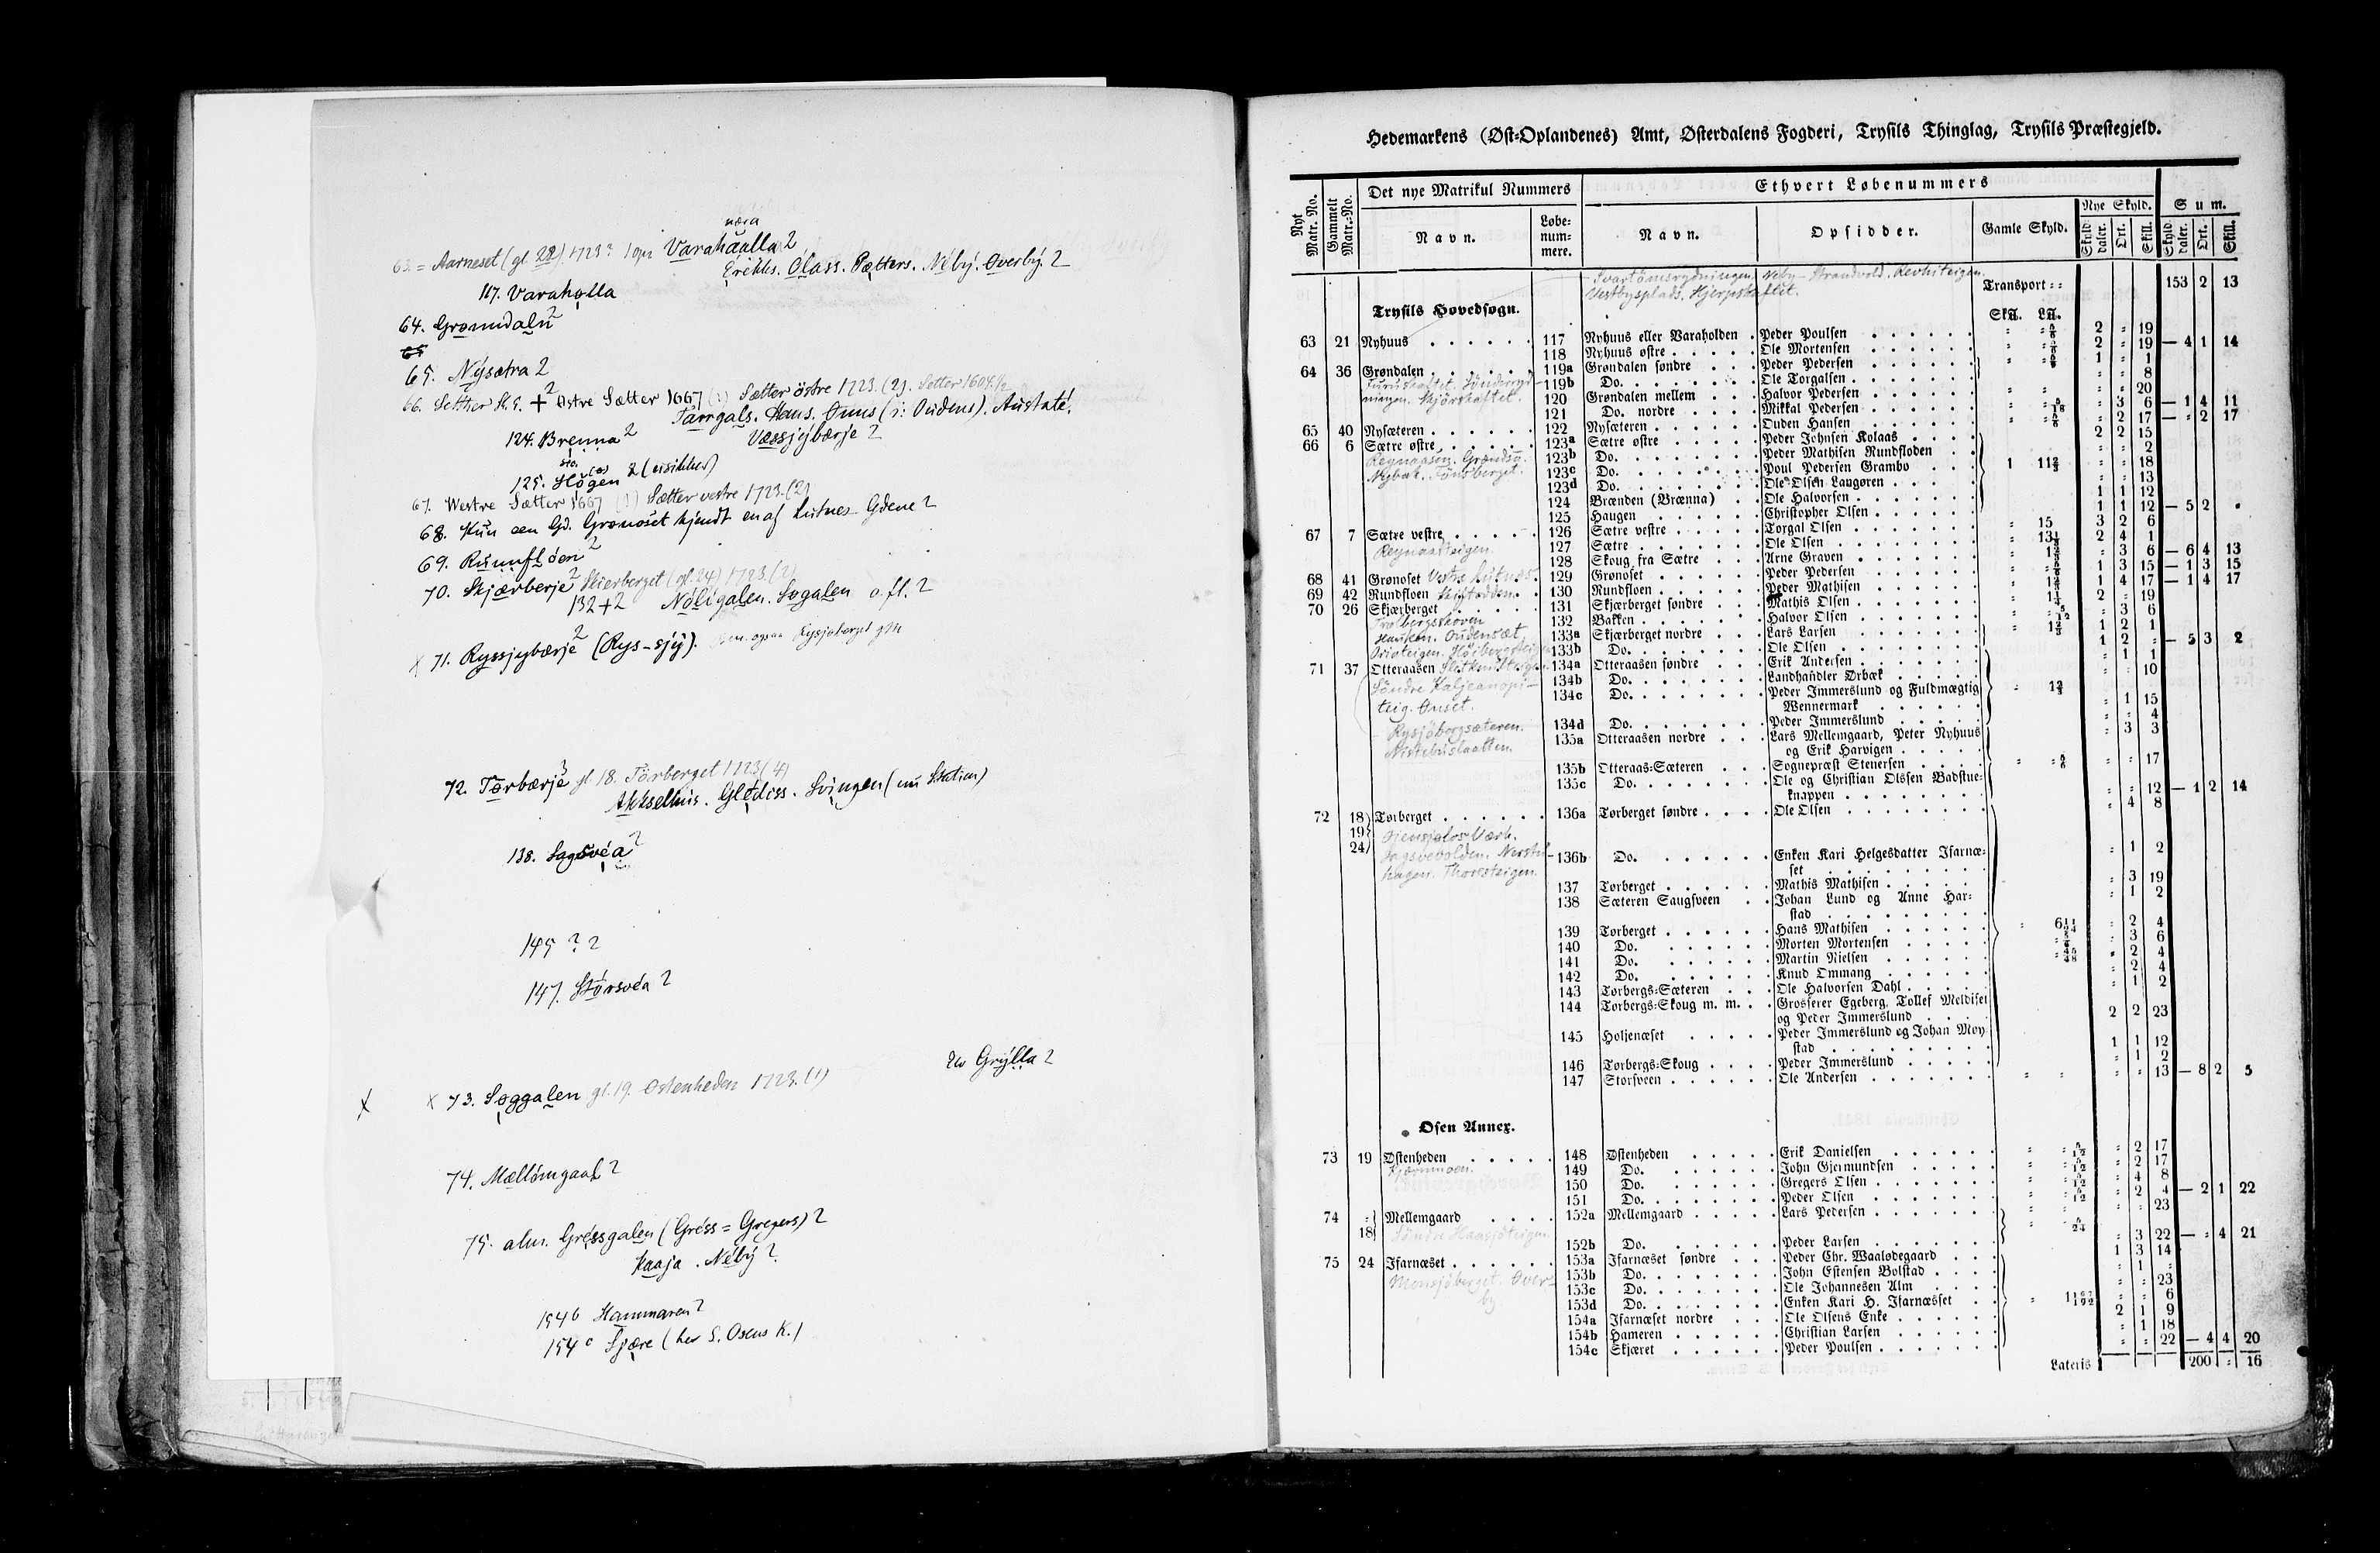 næra
63 = Aarneset (gl 22) 1723? Varahaalla 2
Erikks. Olass. Pætters. Néby. Overby. 2
117. Varaholla
64. Grønndaln 2
65
65. Nysætra 2
66. Setther + 2 Østre Sætter 1667 (1) Sætter östre 1723. (2). Setter 1604. 1/2
Tårrgals. Hans. Onns (ɔ: Oudens). Austaté.
124. Brenna 2 Væssjybærje 2
125. Högen 2 (usikker)
67. Westre Sætter 1667 (1) Sætter vestre 1723. (2)
68. Kun een Gd. Grønoset kjendt en af Lutnes Gdene 2
69. Runnfløen 2
70. Skjærberje 2 Skierberget (gl. 24) 1723. (2)
132 + 2 Nöligalen. Søgalen o. fl. 2
X 71. Ryssjybærje 2 (Rys-sjy). ogsaa Rysjøberget
72. Törbærje 3 gl. 18. Törberget 1723 (4)
Akkselhus. Glediss. Svingen (nu Station)
138. Sagsvéa 2
145 ? 2
147. Störsvéa 2
Grylla 2
X X 73. Søggalen gl. 19. Ostenheden 1723. (1)
74. Mællomgaal 2
75. alm. Gréssgalen (Gréss = Gregers) 2
Kaaja. Néby 2
154 b Hammaren 2
154 c Sjære (her S. Osens K.)
Hedemarkens (Øst-Oplandenes) Amt, Østerdalens Fogderi, Trysils Thinglag, Trysils Præstegjeld.
Nyt Matr. No. Gammelt Matr.-No. Det nye Matrikul Nummers Ethvert Løbenummers
Navn. Løbe-nummere. Navn. Opsidder. Gamle Skyld. Nye Skyld. Sum.
Skyld daler. Ort. Skill. Skyld daler. Ort. Skill.
Svartömsrydningen, Neby - Strandvold. Revliteigen.
Vestbysplads. Hjerpskaftet.
Transport 153 2 13
Trysils Hovedsogn.
63 21 Nyhuus 117 Nyhuus eller Varaholden Peder Poulsen 2 " 19
118 Nyhuus østre Ole Mortensen 2 " 19 — 4 1 14
64 36 Grøndalen 119a Grøndalen søndre Peder Pedersen 1 " 1
Furuskaftet. 119b Do. Ole Torgalsen " " 8
Skjörskaftet. 120 Grøndalen mellem Halvor Pedersen " " 20
121 Do. nordre Mikkal Pedersen " 3 6 — 1 4 11
65 40 Nysæteren 122 Nysæteren Ouden Hansen " 2 17 — " 2 17
66 6 Sætre østre 123a Sætre østre Peder Johnsen Kolaas 2 2 15
Regnaasen. 123b Do. Peder Mathisen Rundfloden " " 2
Nybak. Tönsberget. 123c Do. Poul Pedersen Grambo 1 11⅔ " " 18
123d Do. Ole Olsen Laugøren " " 13
124 Brænden (Brænna) Ole Halvorsen 1 1 12
125 Haugen Christopher Olsen 1 1 12 — 5 2 "
67 7 Sætre vestre 126 Sætre vestre Torgal Olsen " 15 3 2 6
Regnaasteigen. 127 Sætre Ole Olsen " 13⅓ 2 4 1
128 Skoug fra Sætre Arne Graven " 3 6 — 6 4 13
68 41 Grønoset Vestre Lutnes. 129 Grønoset Peder Pedersen 1 3 15 — 1 3 15
69 42 Rundfloen 130 Rundfloen Peder Mathisen 1 4 17 — 1 4 17
70 26 Skjærberget 131 Skjærberget søndre Mathis Olsen 2 " 19
Trolbergshoven 132 Bakken Halvor Olsen " 3 6
Oudensæt, 133a Skjærberget nordre Lars Larsen 1 2 1
133b Do. Ole Olsen 1 2 " — 5 3 2
71 37 Otteraasen 134a Otteraasen søndre Erik Andersen " 1 1
Söndre 134b Do. Landhandler Orbæk " " 10
teig. Onset. 134c Do. Peder Immerslund og Fuldmægtig
Wennermark " 1 15
134d Do. Peder Immerslund " " 4
Rysjöbergsæteren. 135a Otteraasen nordre Lars Mellemgaard, Peter Nyhuus
og Erik Harvigen " 3 3
135b Otteraas-Sæteren Sognepræst Stenersen " " 17
135c Do. Ole og Christian Olssen Badstue-
knappen " " 12 — 1 2 14
72 18 Torberget 136a Torberget søndre Ole Olsen " 4 8
19
24
136b Do. Enken Kari Helgesdatter Isarnæ-
set " 1 2
hagen. Thoresteigen.
137 Torberget Mathis Mathisen " 3 19
138 Sæteren Saugsveen Johan Lund og Anne Har-
stad " 1 2
139 Torberget Hans Mathisen " 2 4
140 Do. Morten Mortensen " 3 6
141 Do. Martin Nielsen " 2 4
142 Do. Knud Ommang " 2 4
143 Torbergs-Sæteren Ole Halvorsen Dahl " 1 2
144 Torbergs-Skoug m. m. Grosserer Egeberg, Tollef Meldiset
og Peder Immerslund 2 2 23
145 Holjenæset Peder Immerslund og Johan Moy-
stad 1 1 12
146 Torbergs-Skoug Peder Immerslund " 1 2
147 Storsveen Ole Andersen " " 13 — 8 2 5
Osen Annex.
73 19 Østenheden 148 Østenheden Erik Danielsen " 2 17
149 Do. John Gjermundsen " 2 17
150 Do. Gregers Olsen " 4 8
151 Do. Peder Olsen " 2 4 — 2 1 22
74 " Mellemgaard 152a Mellemgaard Lars Pedersen " " 23
18 Söndre Haasjöteigen
152b Do. Peder Larsen " 3 22 — " 4 21
75 24 Isarnæset 153a Isarnæset søndre Peder Chr. Waalødegaard 1 3 14
Monsjöberget. Over- 153b Do. John Estensen Bolstad " 1 "
by 153c Do. Ole Johannesen Alm " " 23
153d Do. Enken Kari H. Isarnæsset " " 6
154a Isarnæset nordre Ole Olsens Enke 2 1 9
154b Hameren Christian Larsen " 1 18
154c Skjæret Peder Poulsen " " 22 — 4 4 20
Lateris 200 " 16